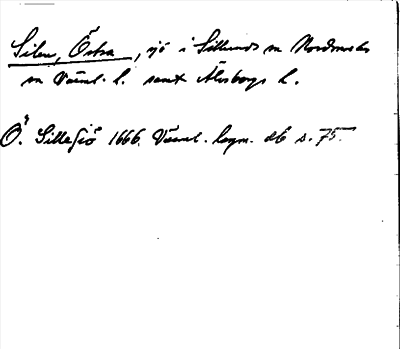 Silen, Östra, sjö i Silleruds sn Nordmarks
sn Värml. l. samt Älvsborgs l.
Ö. Sillesiö 1666. Värml. lagm. db s. 75.